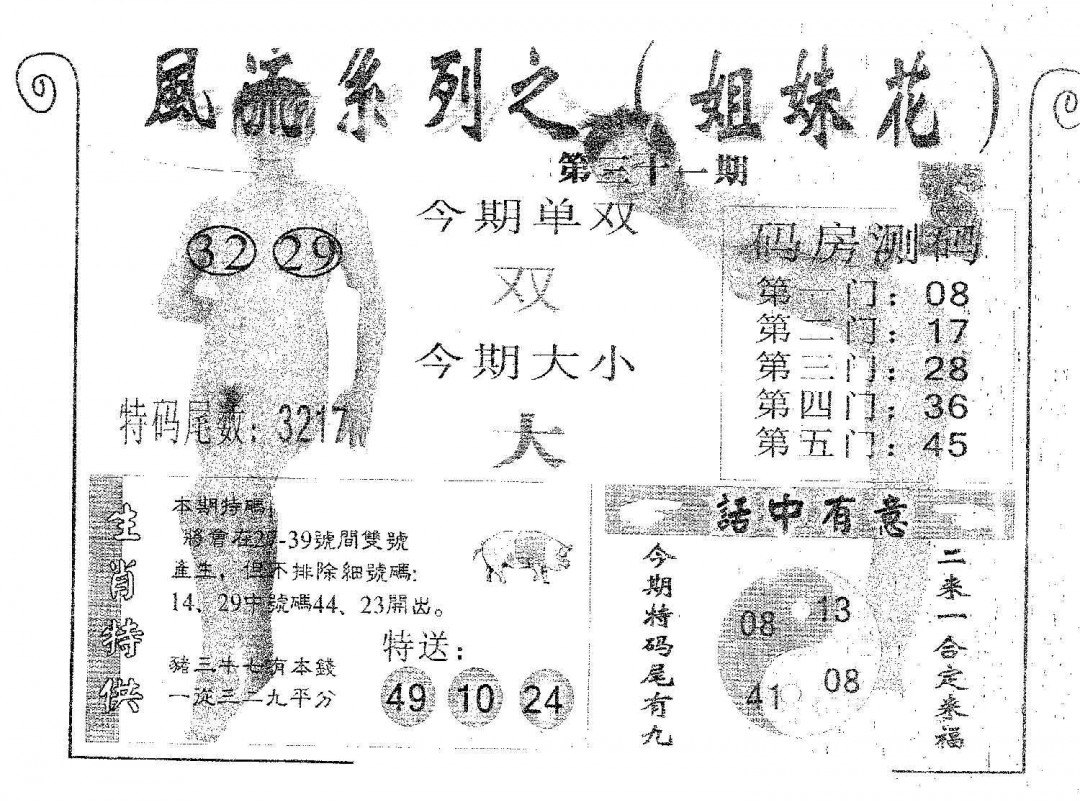 風流系列之（姐妹花）
第三十一期
32 29
今期单双
双
今期大小
大
特码尾数：3217
码房测码
第一门：08
第二门：17
第三门：28
第四门：36
第五门：45
生肖特供
本期特碼
將會在2-39號間雙號
產生，但不排除細號碼：
14、29中號碼44、23開出。
豬三牛七有本錢
一從三二九平分
特送：
49 10 24
話中有意
今期特码尾有九
08 13
41 08
二来一合定来福